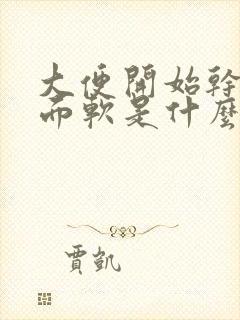 大便開始幹
而軟是什麼
賈凱